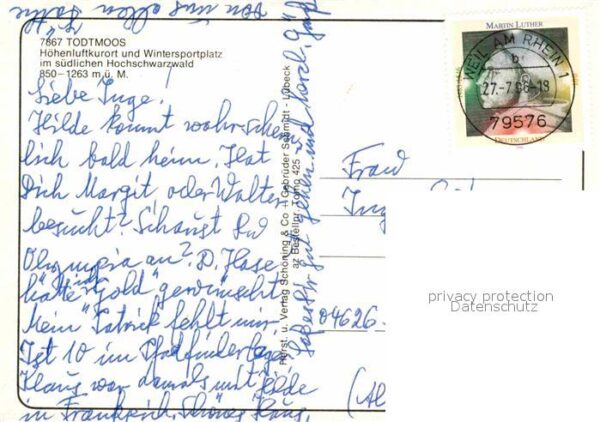 von uns allen
7867 TODTMOOS
Höhenluftkurort und Wintersportplatz
im südlichen Hochschwarzwald
850–1263 m ü. M.
Liebe Inge!
Hilde kommt wahrschein
lich bald heim. Hat
Dich Margit oder Walter
besucht? Schaust Du
Olympia an? D. Hase
hätte "Gold" gewünscht
Mein "Patrick" fehlt mir.
Ist 10 im Pfadfinderlager
Klaus war damals mit Hilde
in Frankreich. Schönes Haus,
Schöning & Co + Gebrüder Schmidt - Lübeck
u. Verlag
MARTIN LUTHER
WEIL AM RHEIN 1
b
79576
DEUTSCHLAND
Frau
04626
privacy protection
Datenschutz